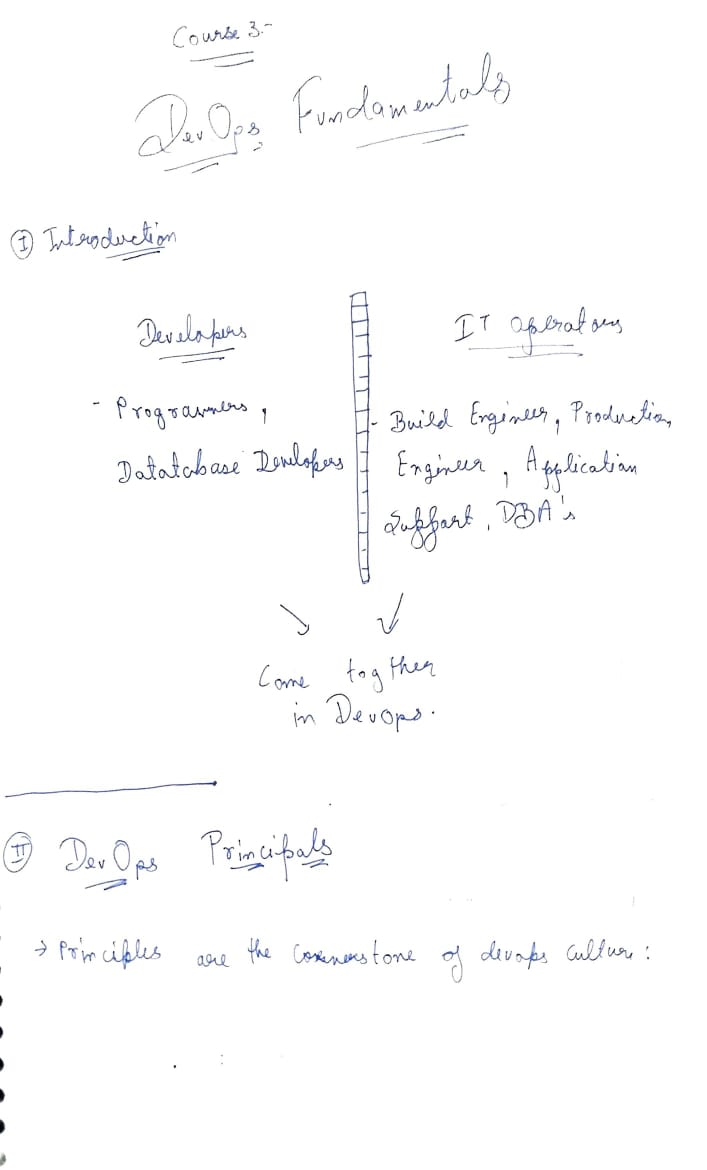 Course 3:-
DevOps Fundamentals
I Introduction
Developers
- Programmers,
Datatabase Developers
IT operators
- Build Engineer, Production,
Engineer, Application
Support, DBA's
Come togther
in Devops.
II DevOps Principals
→ Principles are the cornerstone of devops culture: